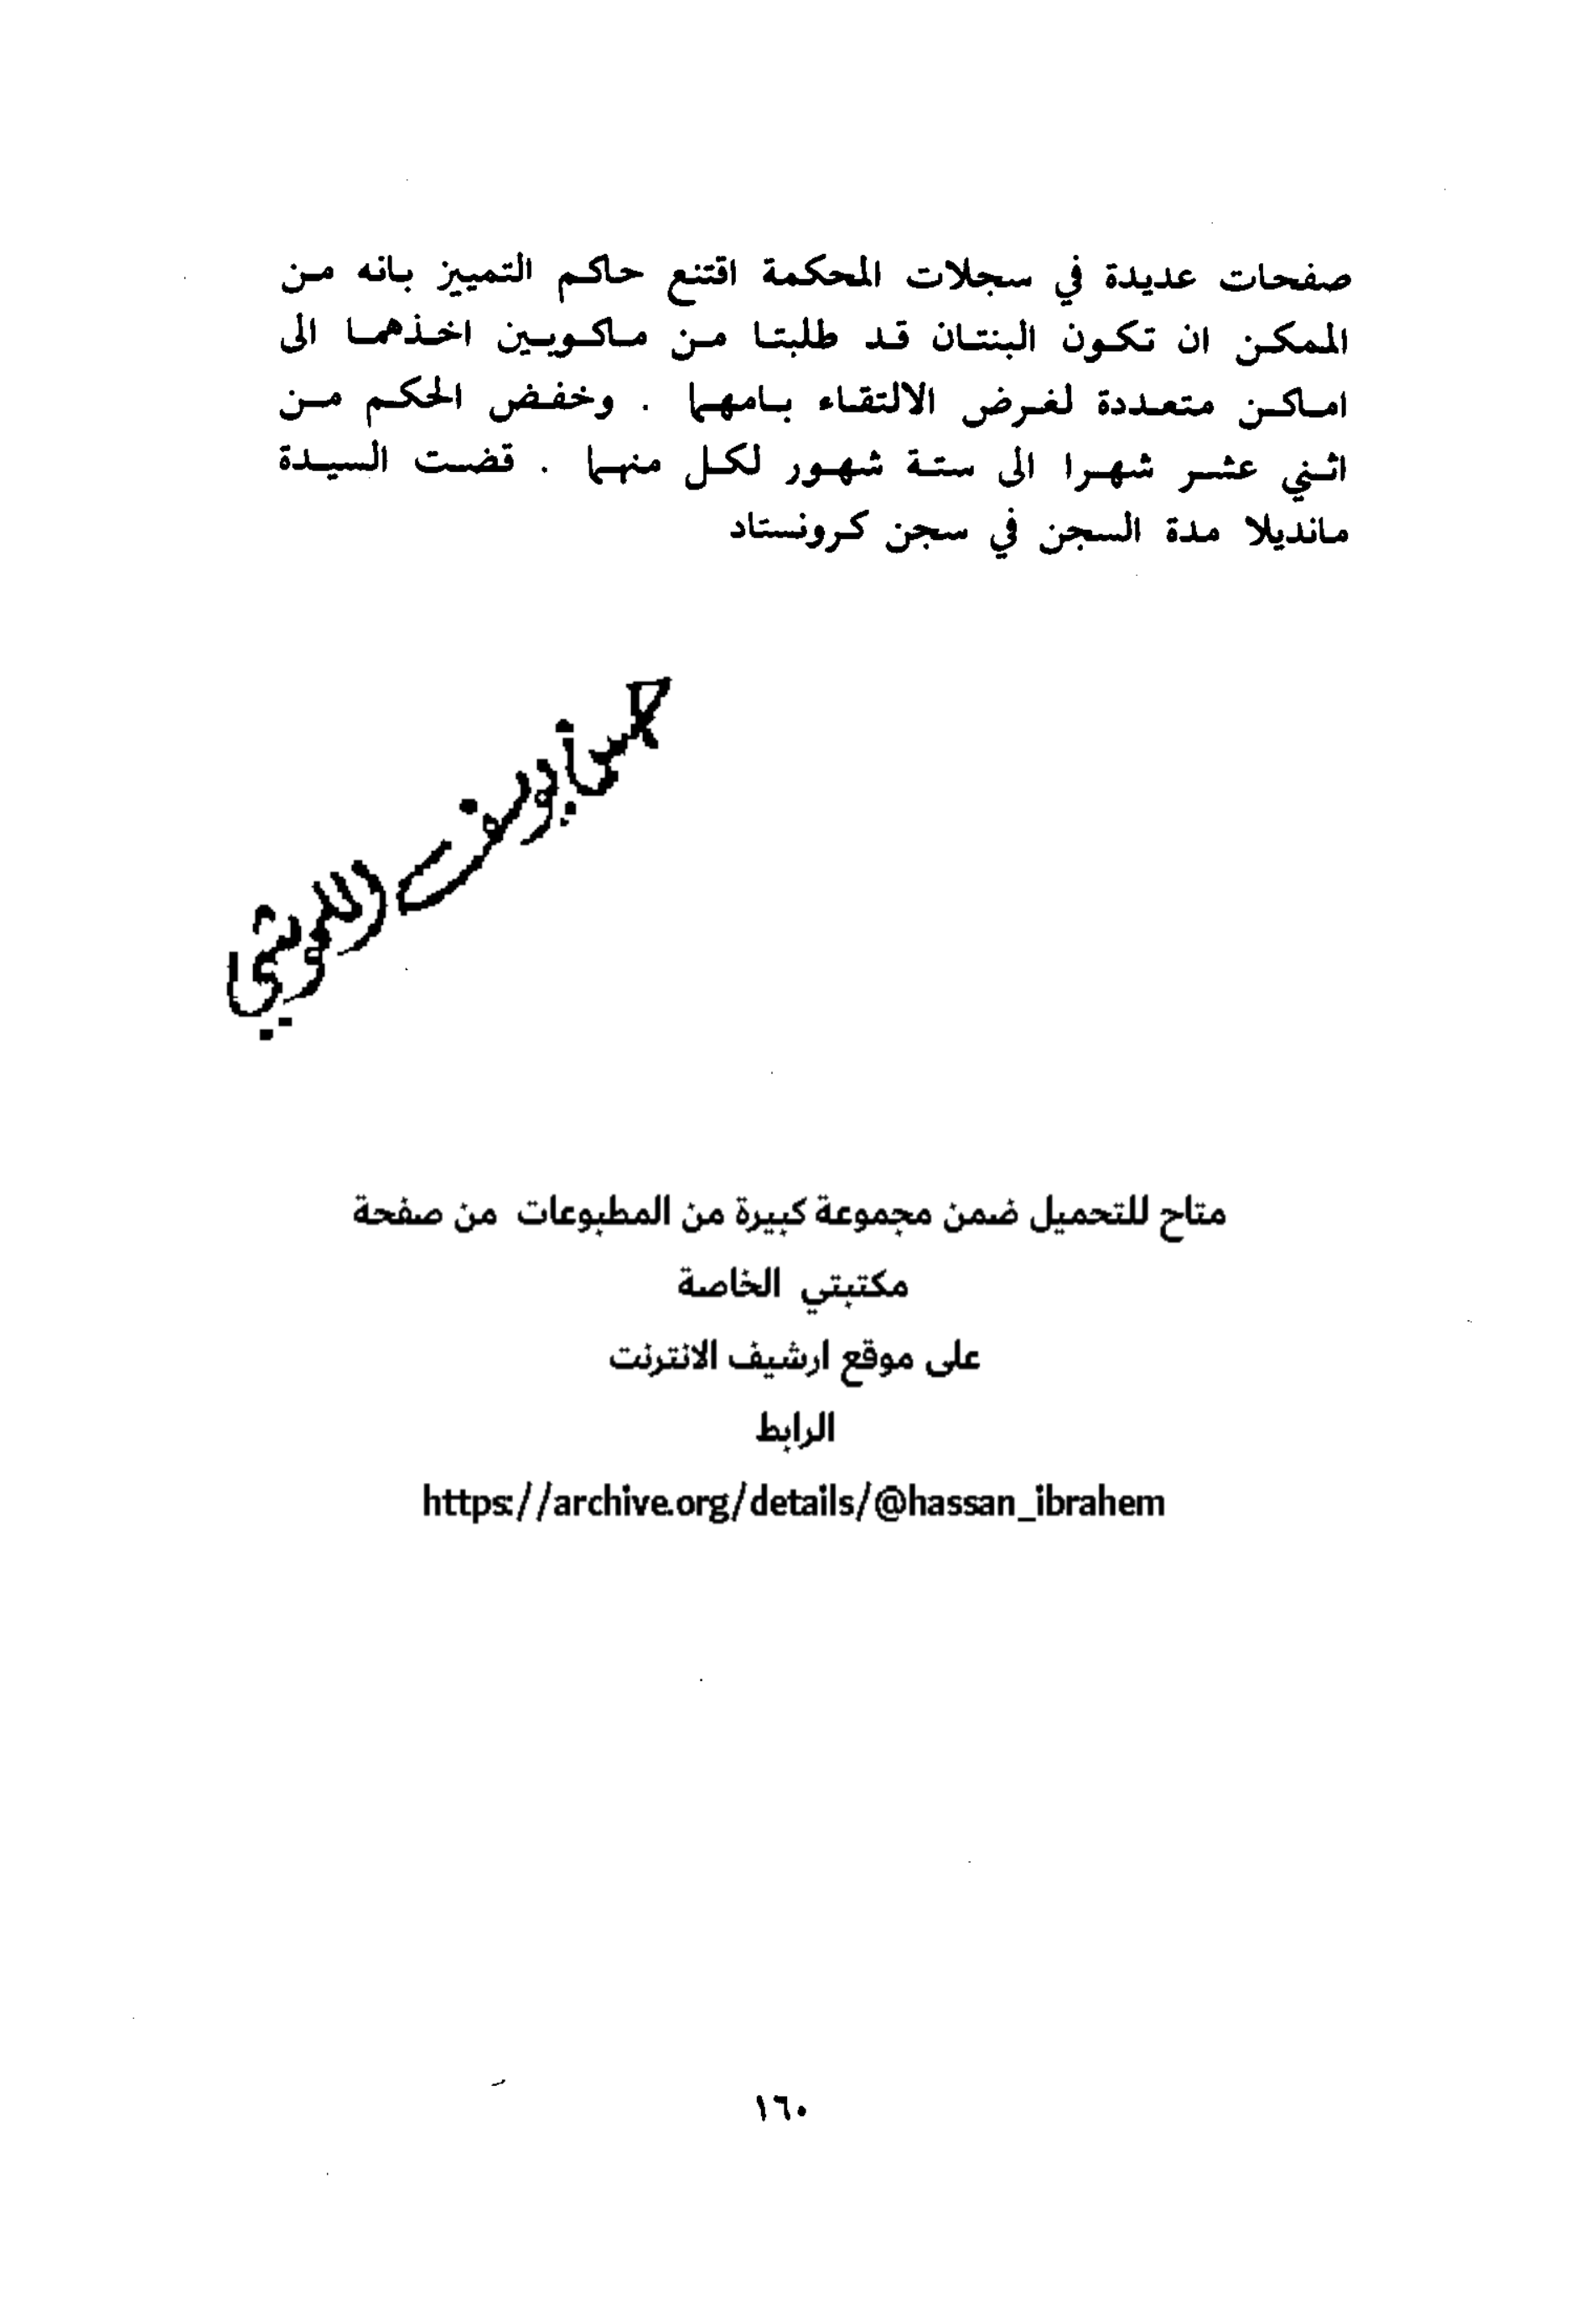 صفحات عديدة في سجلات المحكمة اقتنع حاكم التمييز بانه من
الممكن ان تكون البنتان قد طلبتا من ماكويين اخذهما الى
اماكن متعددة لغرض الالتقاء بامهما . وخفض الحكم من
اثني عشر شهرا الى ستة شهور لكل منهما . قضت السيدة
مانديلا مدة السجن في سجن كرونستاد
متاح للتحميل ضمن مجموعة كبيرة من المطبوعات من صفحة
مكتبتي الخاصة
على موقع ارشيف الانترنت
الرابط
https://archive.org/details/@hassan_ibrahem
١٦٠